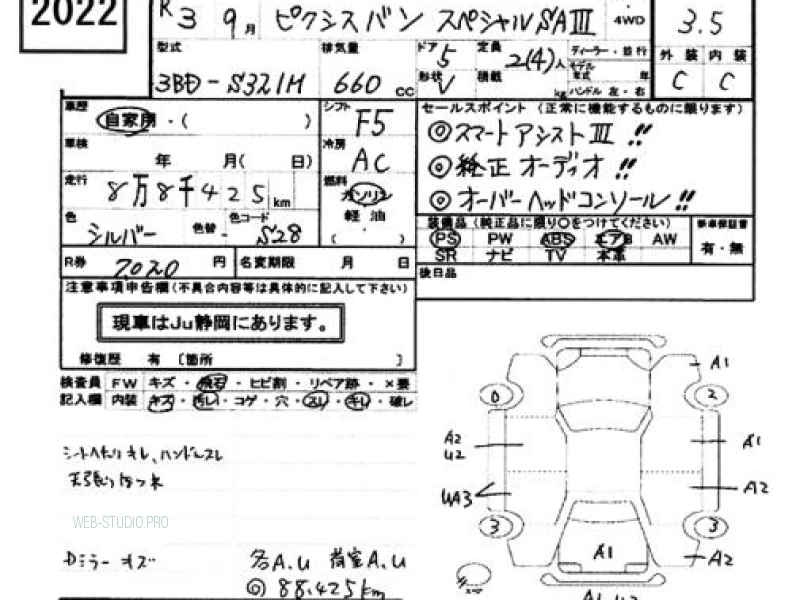 2022
R 3 9月 ピクシスバン スペシャルSAⅢ 4WD 3.5
型式 排気量 ドア 5 定員 2(4)人 ディーラー・並行 外装 内装
3BD-S321M 660 cc 形状 V 積載 kg モデル年式 年 ハンドル 左・右 C C
車歴 自家用・( ) シフト F5
セールスポイント (正常に機能するものに限ります)
◎スマートアシストⅢ!!
車検 年 月( 日) 冷房 AC
◎純正オーディオ!!
走行 8万8千425km 燃料 ガソリン 軽油 ( ・ )
◎オーバーヘッドコンソール!!
色 シルバー 色替 - 色コード S28
装備品(純正品に限り○をつけてください) 新車保証書
PS PW ABS エアB AW 有・無
SR ナビ TV 本革
R券 7020円 名変期限 月 日
後日品
注意事項申告欄(不具合内容等は具体的に記入して下さい)
現車はJu静岡にあります。
修復歴 有 〔箇所 〕
検査員 FW キズ・飛石・ヒビ割・リペア跡・×要
記入欄 内装 キズ・汚れ・コゲ・穴・スレ・キレ・破レ
A1
0 2
A2 U2 A1
シートヘタリ キレ、ハンドルスレ
UA3 A2
WEB-STUDIO.PRO
3 3
Dミラー キズ
各A.U 荷室A.U
A1 A2
◎88.425km